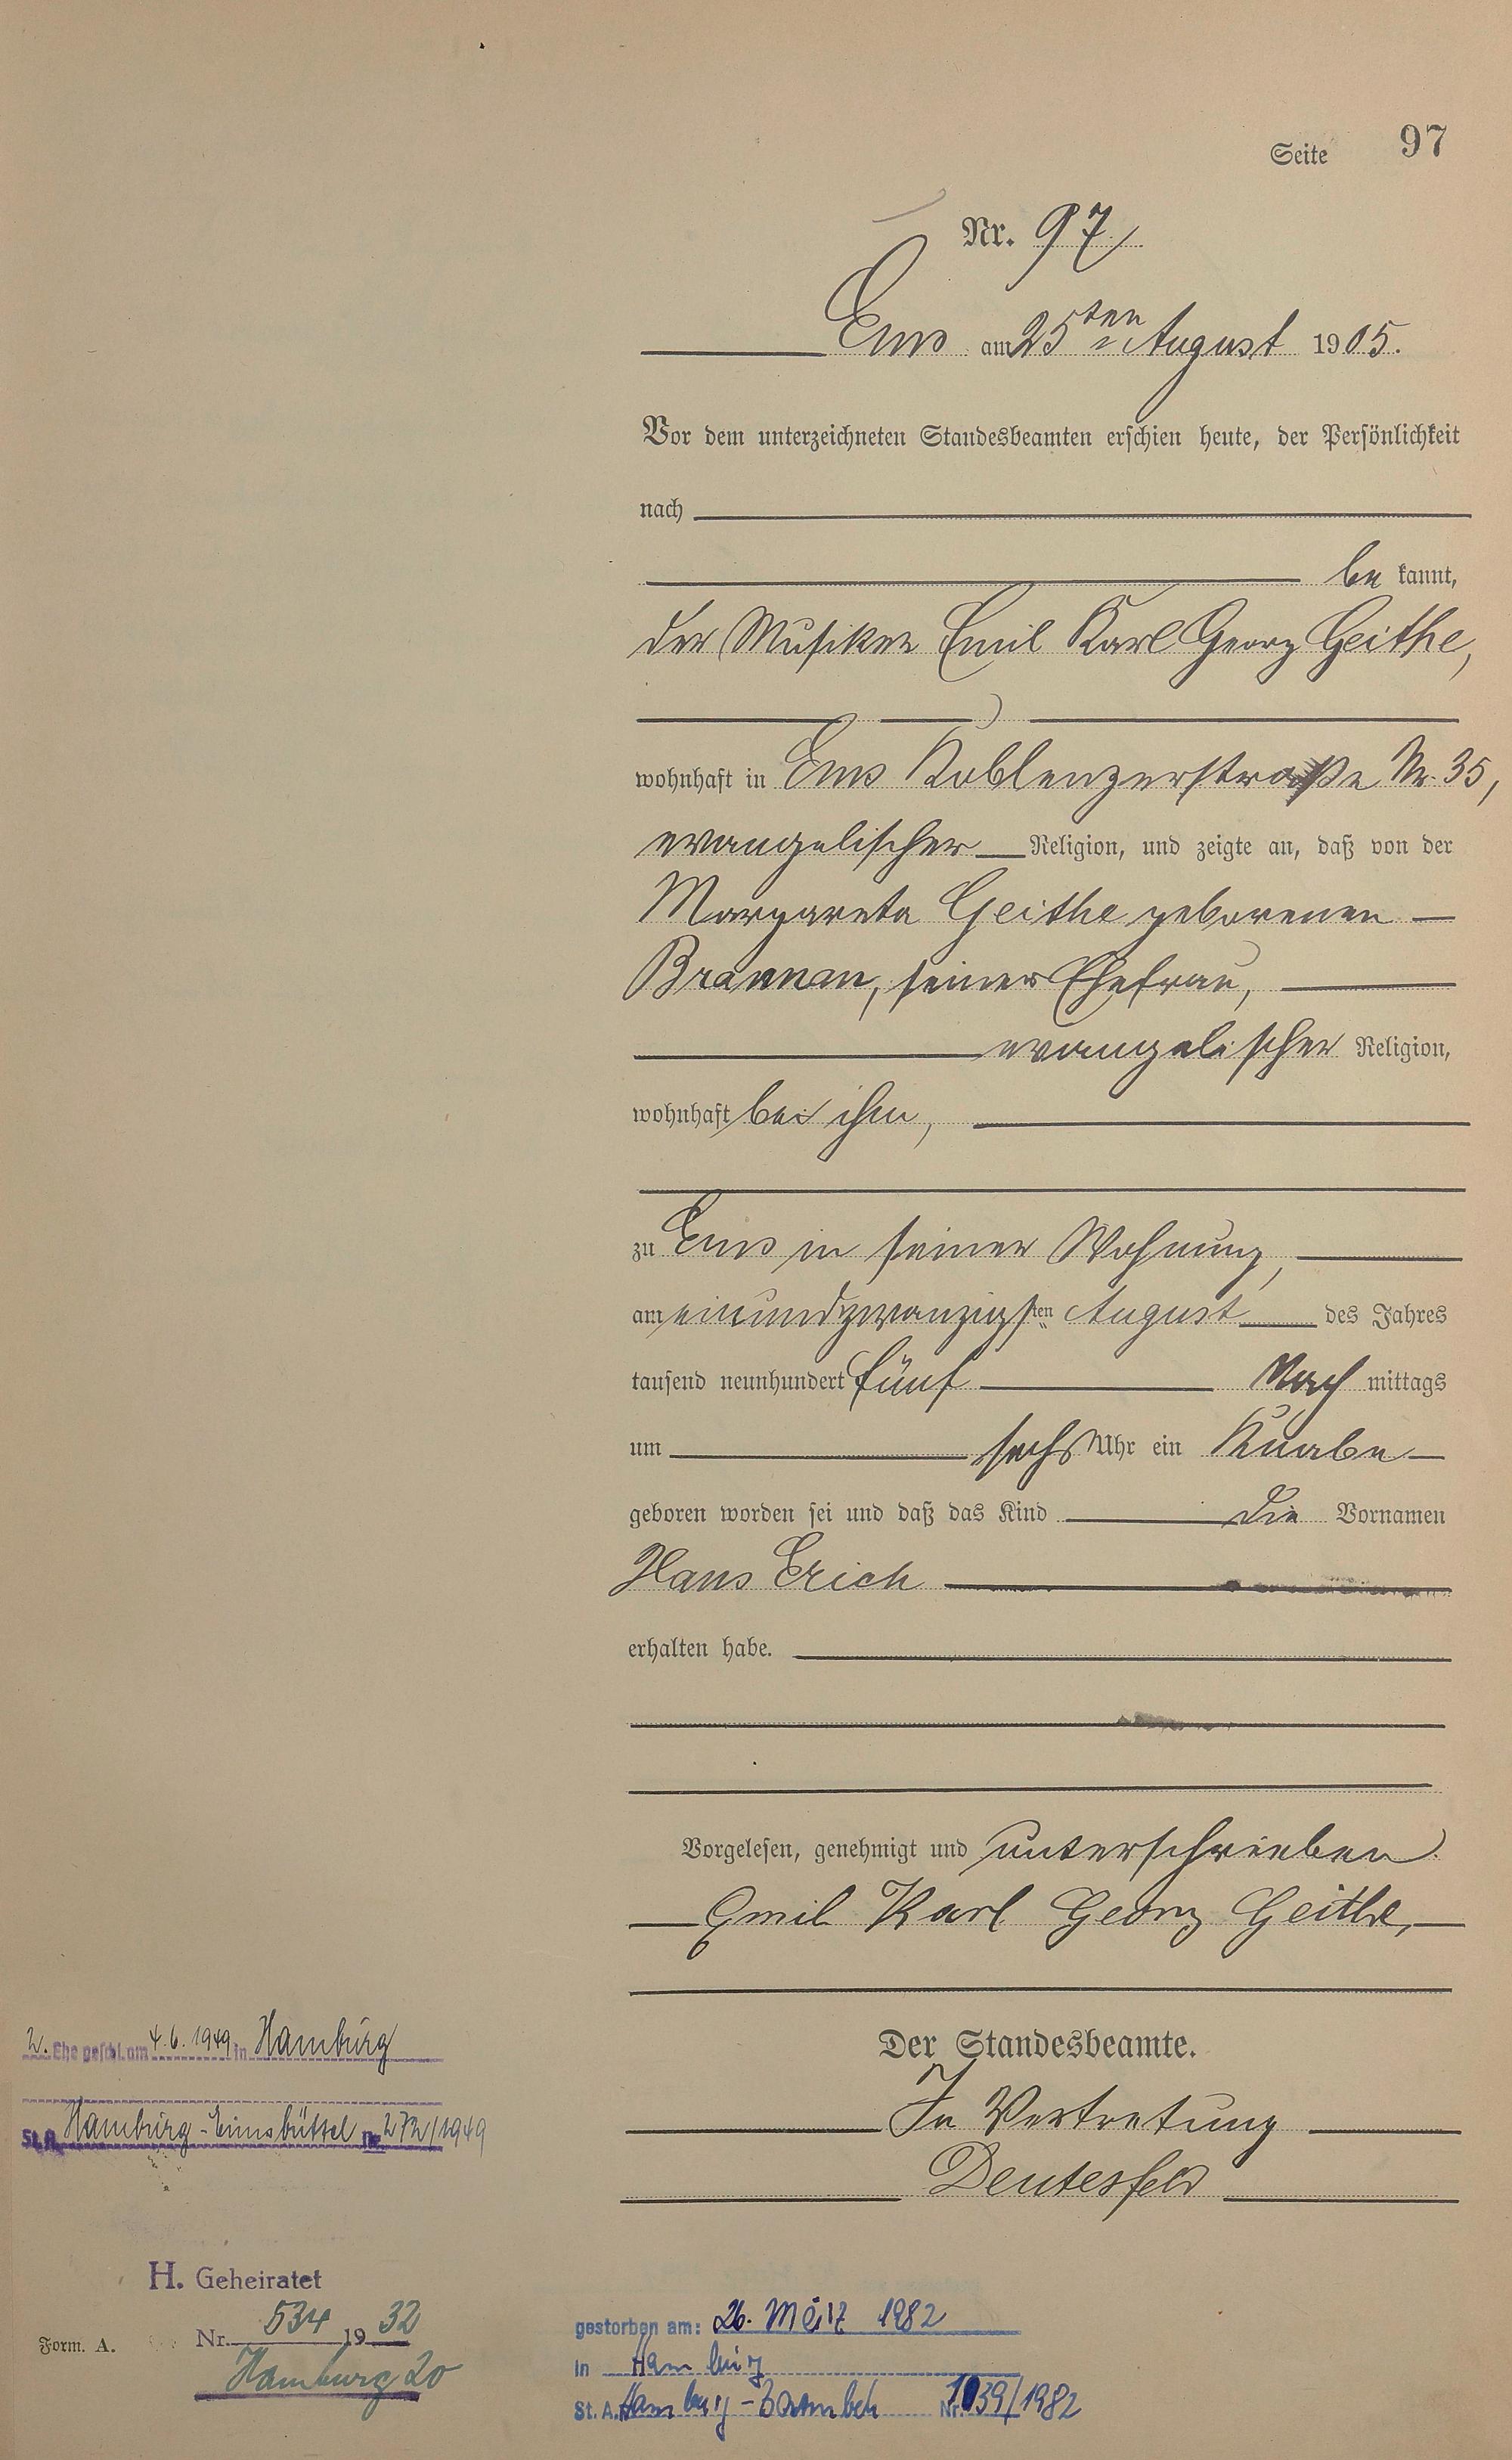 Seite 97
Nr. 97
Ems am 25ten August 1905.
Vor dem unterzeichneten Standesbeamten erschien heute, der Persönlichkeit
nach
be kannt,
der Musiker Emil Karl Georg Geithe,
wohnhaft in Ems Koblenzerstraße Nr. 35,
evangelischer Religion, und zeigte an, daß von der
Margareta Geithe geborenen
Brannan, seiner Ehefrau,
evangelischer Religion,
wohnhaft bei ihm,
zu Ems in seiner Wohnung,
am einundzwanzigsten August des Jahres
tausend neunhundert fünf Nach mittags
um sechs Uhr ein Knabe
geboren worden sei und daß das Kind die Vornamen
Hans Erich
erhalten habe.
Vorgelesen, genehmigt und unterschrieben
Emil Karl Georg Geithe,
Der Standesbeamte.
In Vertretung
Deutesfeld
2. Ehe geschl. am 4.6.1949 in Hamburg
St.A. Hamburg-Eimsbüttel Nr. 272/1949
H. Geheiratet
Nr. 534 1932
Hamburg 20
Form. A.
gestorben am: 26. März 1982
in Hamburg
St. A. Hamburg-Barmbek Nr. 1039/1982